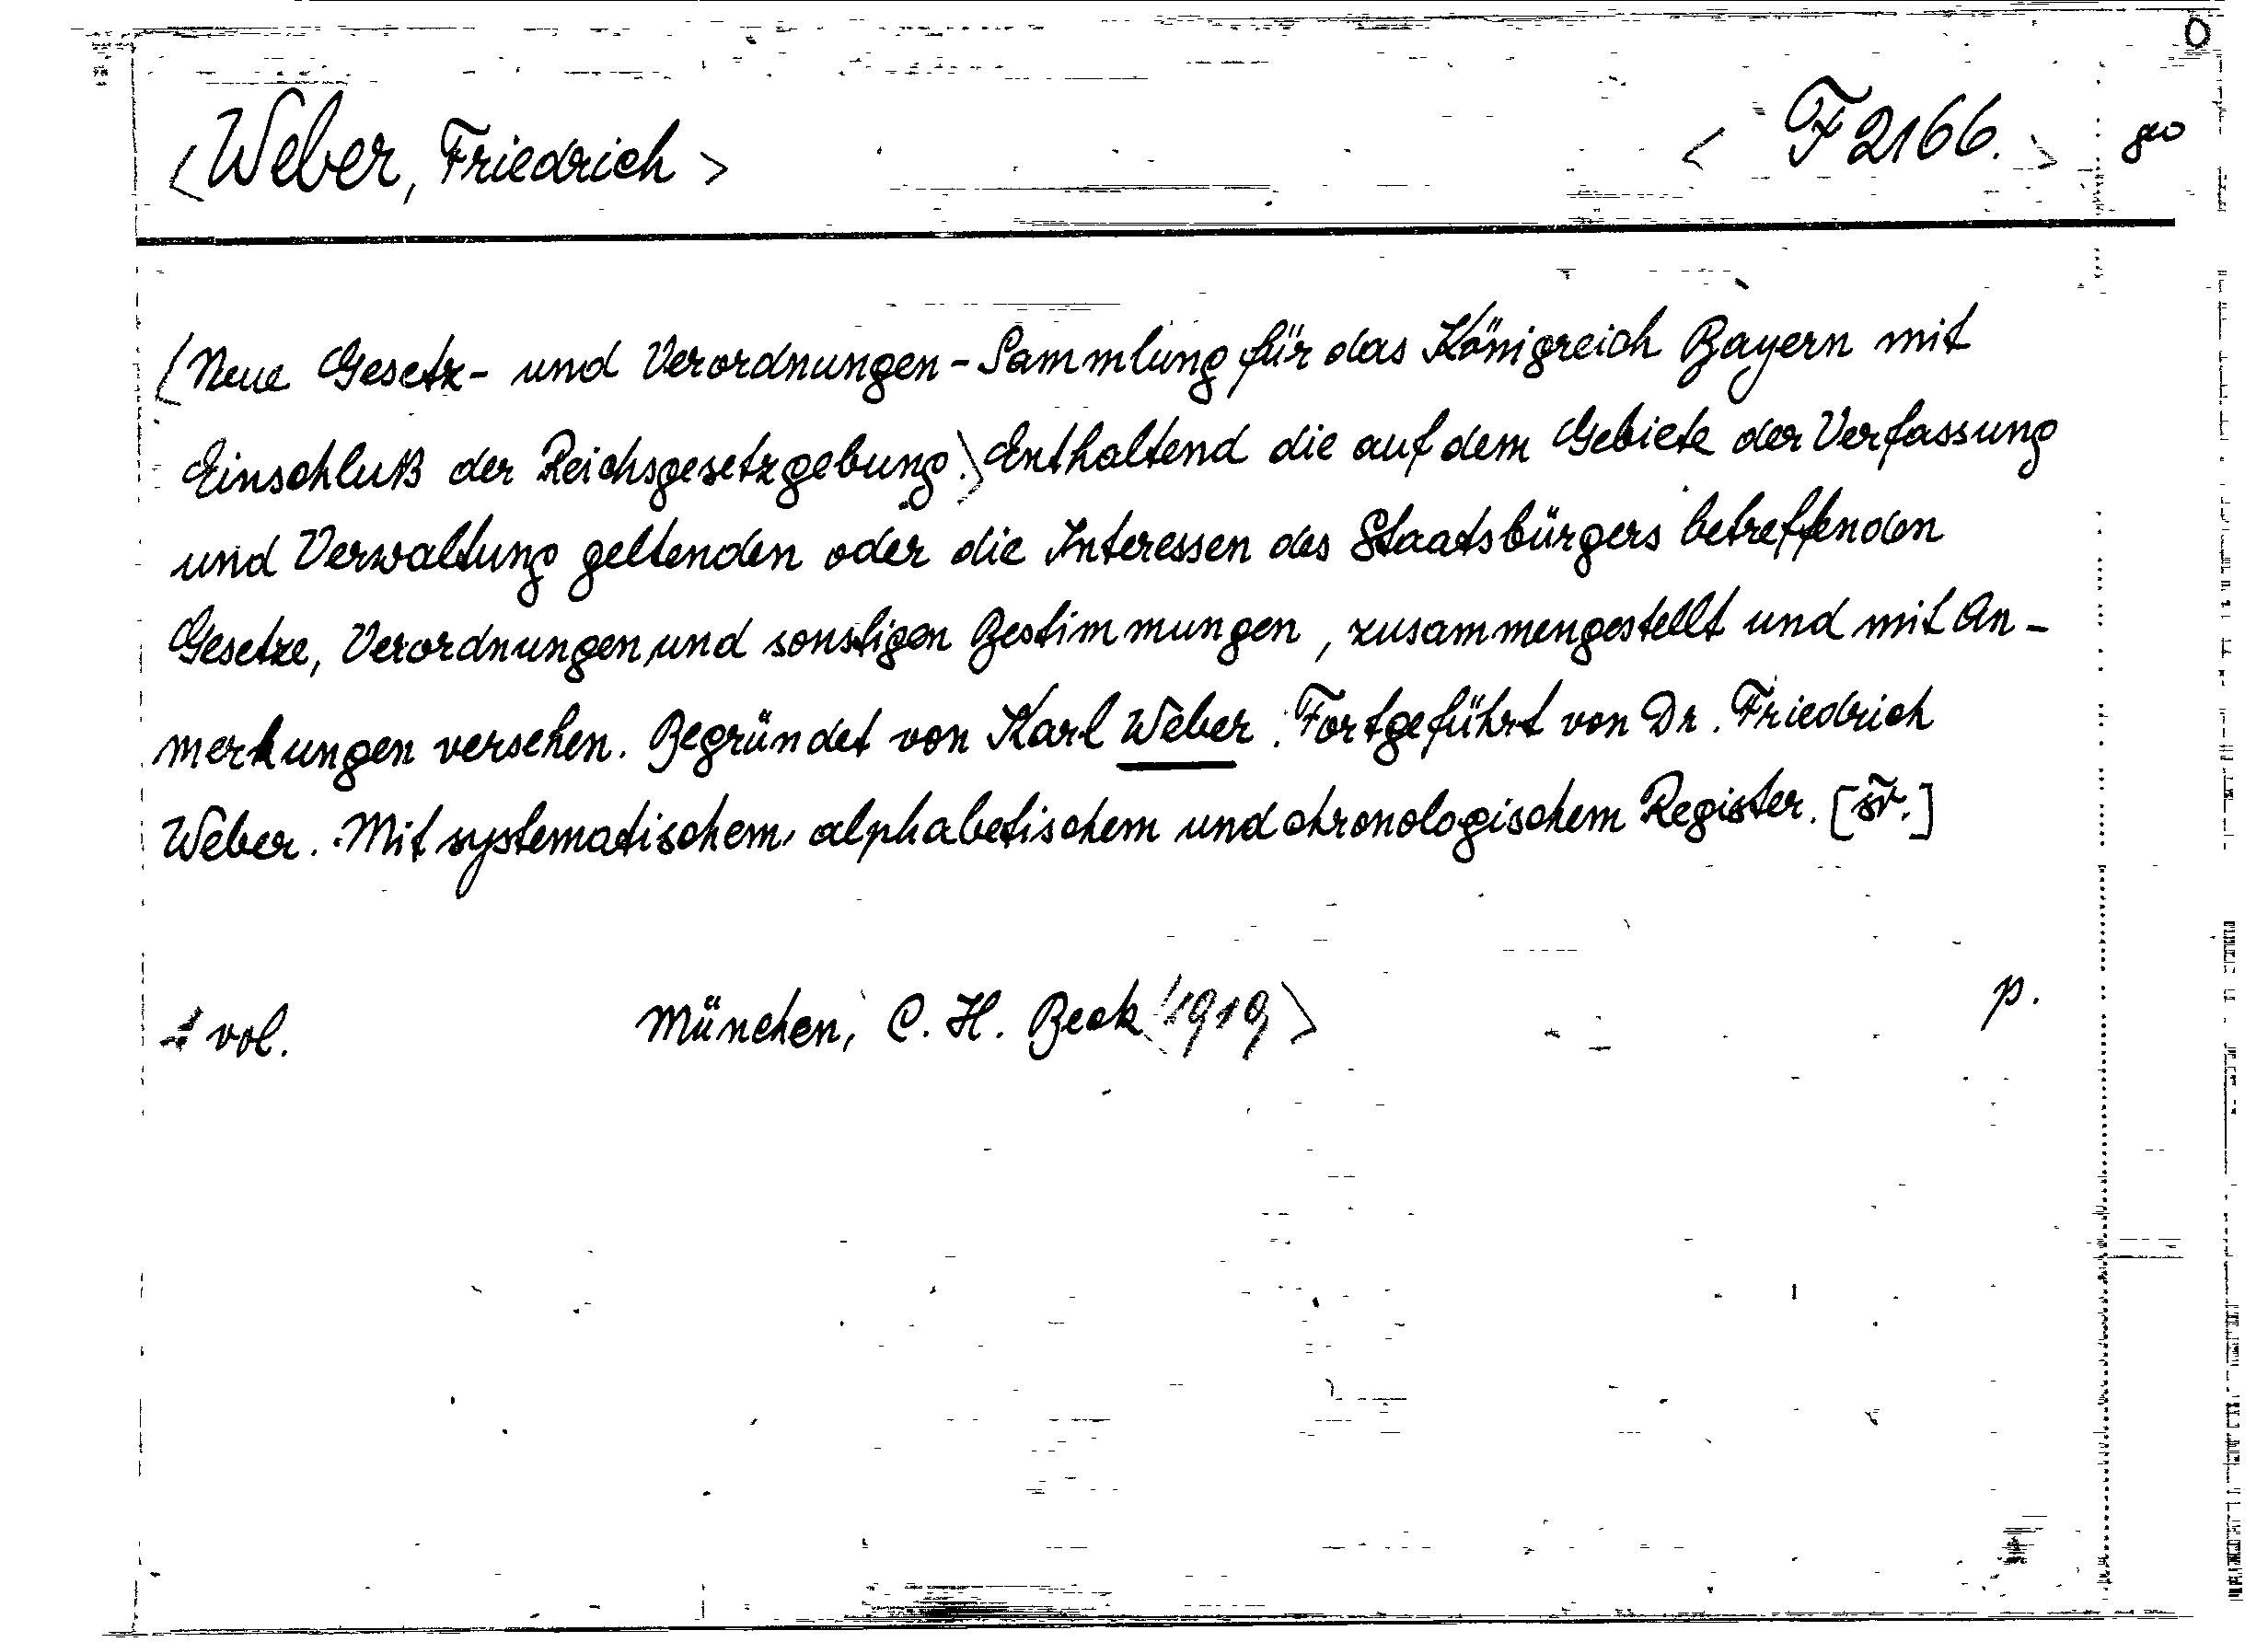 O
<Weber, Friedrich> <F 2166.>
<Neue Gesetz- und Verordnungen-Sammlung für das Königreich Bayern mit
Einschluß der Reichsgesetzgebung.> Enthaltend die auf dem Gebiete der Verfassung
und Verwaltung geltenden oder die Interessen des Staatsbürgers betreffenden
Gesetze, Verordnungen und sonstigen Bestimmungen, zusammengestellt und mit An-
merkungen versehen. Begründet von Karl Weber. Fortgeführt von Dr. Friedrich
Weber. Mit systematischem, alphabetischem und chronologischem Register.
vol. München, C. H. Beck <1919> p.